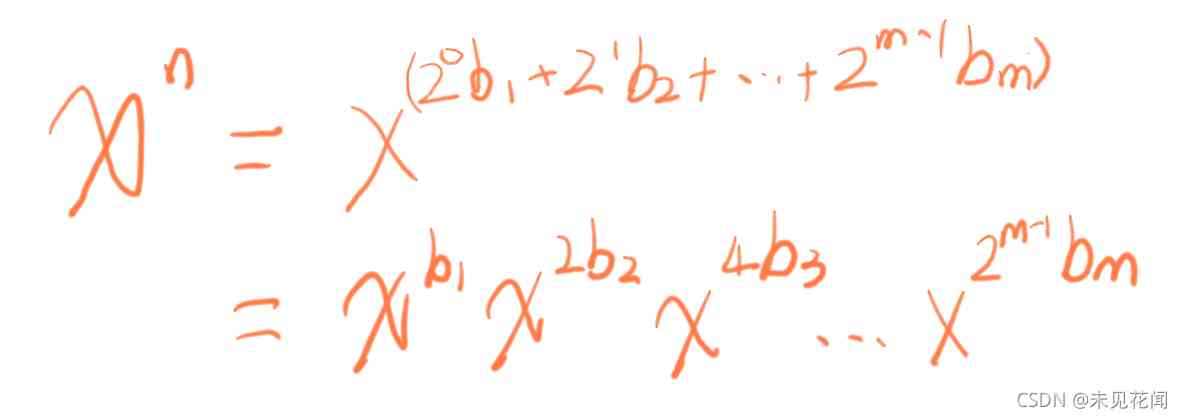 xⁿ = x^(2⁰b₁+2¹b₂+⋯+2^(m-1)bₘ)
= x^(b₁) x^(2b₂) x^(4b₃) ⋯ x^(2^(m-1)bₘ)
CSDN @未见花闻